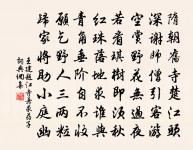 隋朝舊寺楚江頭
深謝師僧引客遊
空賞野花無過夜
若看琪樹即須秋
紅珠落地求誰與
青角垂階自不收
願乞野人三兩粒
歸家將助小庭幽
王建題江寺兼求藥子
詞典網集